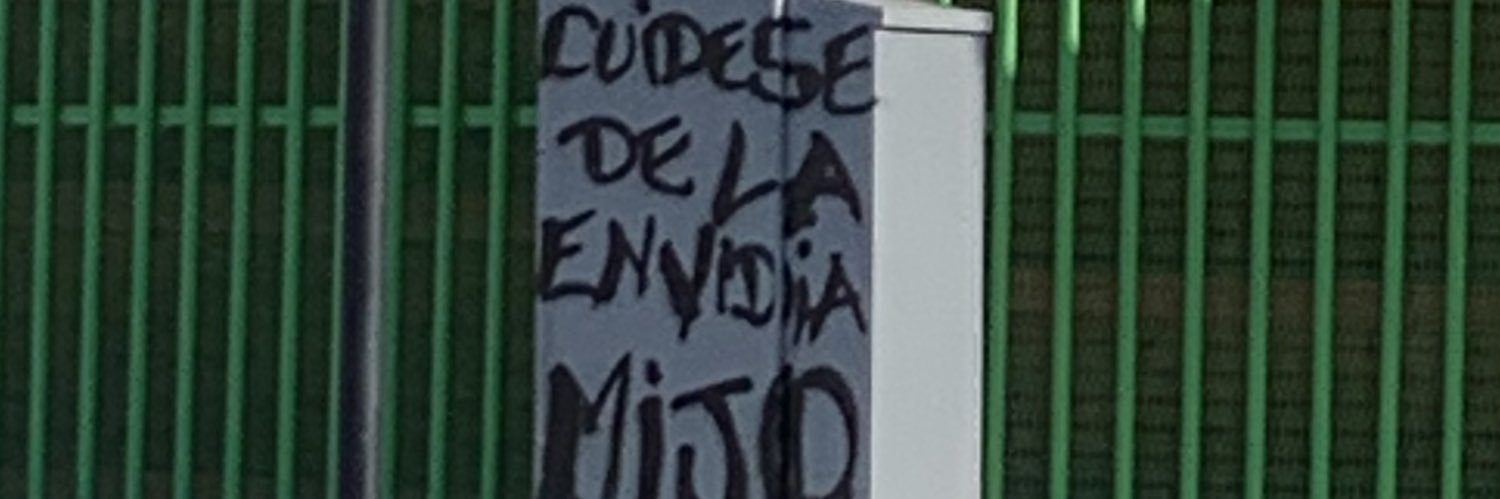 CUIDESE
DE LA
ENVIDiA
MiJO